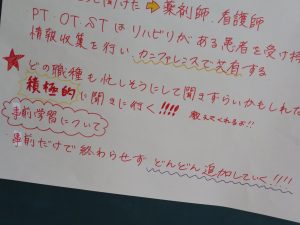 聞けた➡薬剤師・看護師
PT・OT・STはリハビリがある患者を受け持
情報収集を行い カンファレンスで共有する
★どの職種も忙しそうにして聞きずらいかもしれな
積極的に聞きに行く!!!! 教えてくれるよ!!
事前学習について
事前だけで終わらせずどんどん追加していく!!!!